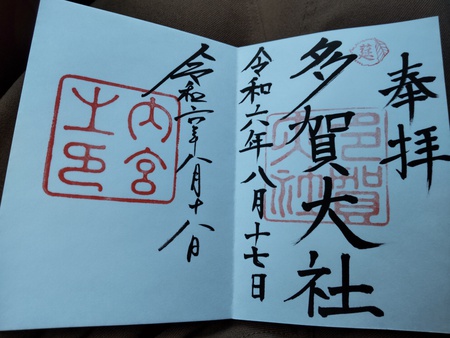 奉拝
多賀大社
令和六年八月十七日
多賀大社
令和六年八月十八日
内宮
之印